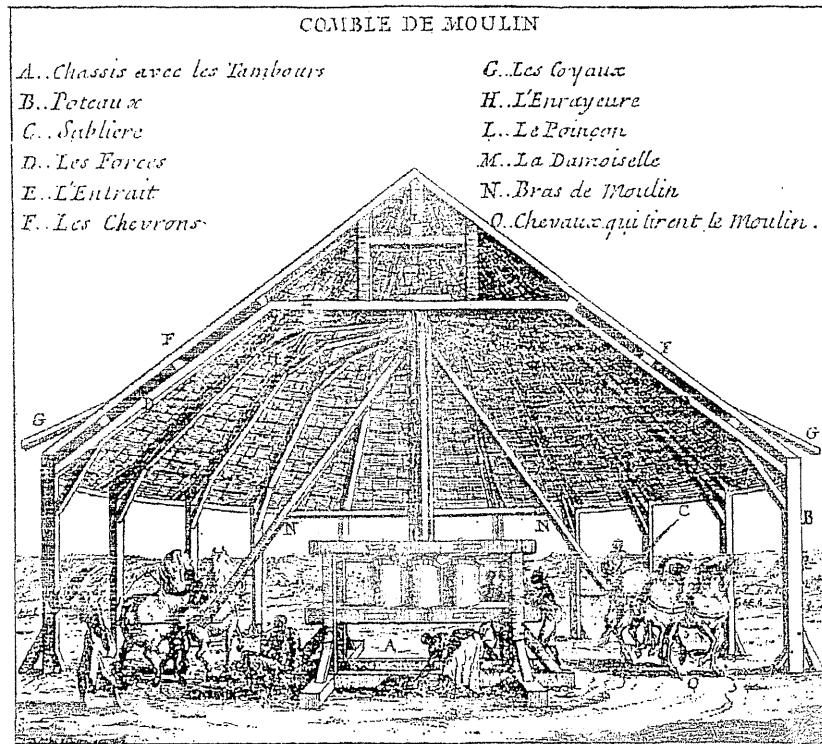 COMBLE DE MOULIN
A.. Chassis avec les Tambours
B.. Poteaux
C.. Sabliere
D.. Les Forces
E.. L'Entrait
F.. Les Chevrons
G.. Les Coyaux
H.. L'Enrayeure
L.. Le Poinçon
M.. La Damoiselle
N.. Bras de Moulin
O.. Chevaux qui tirent le Moulin.
L
E
F
F
H
D
G
G
C
B
N
N
A
O